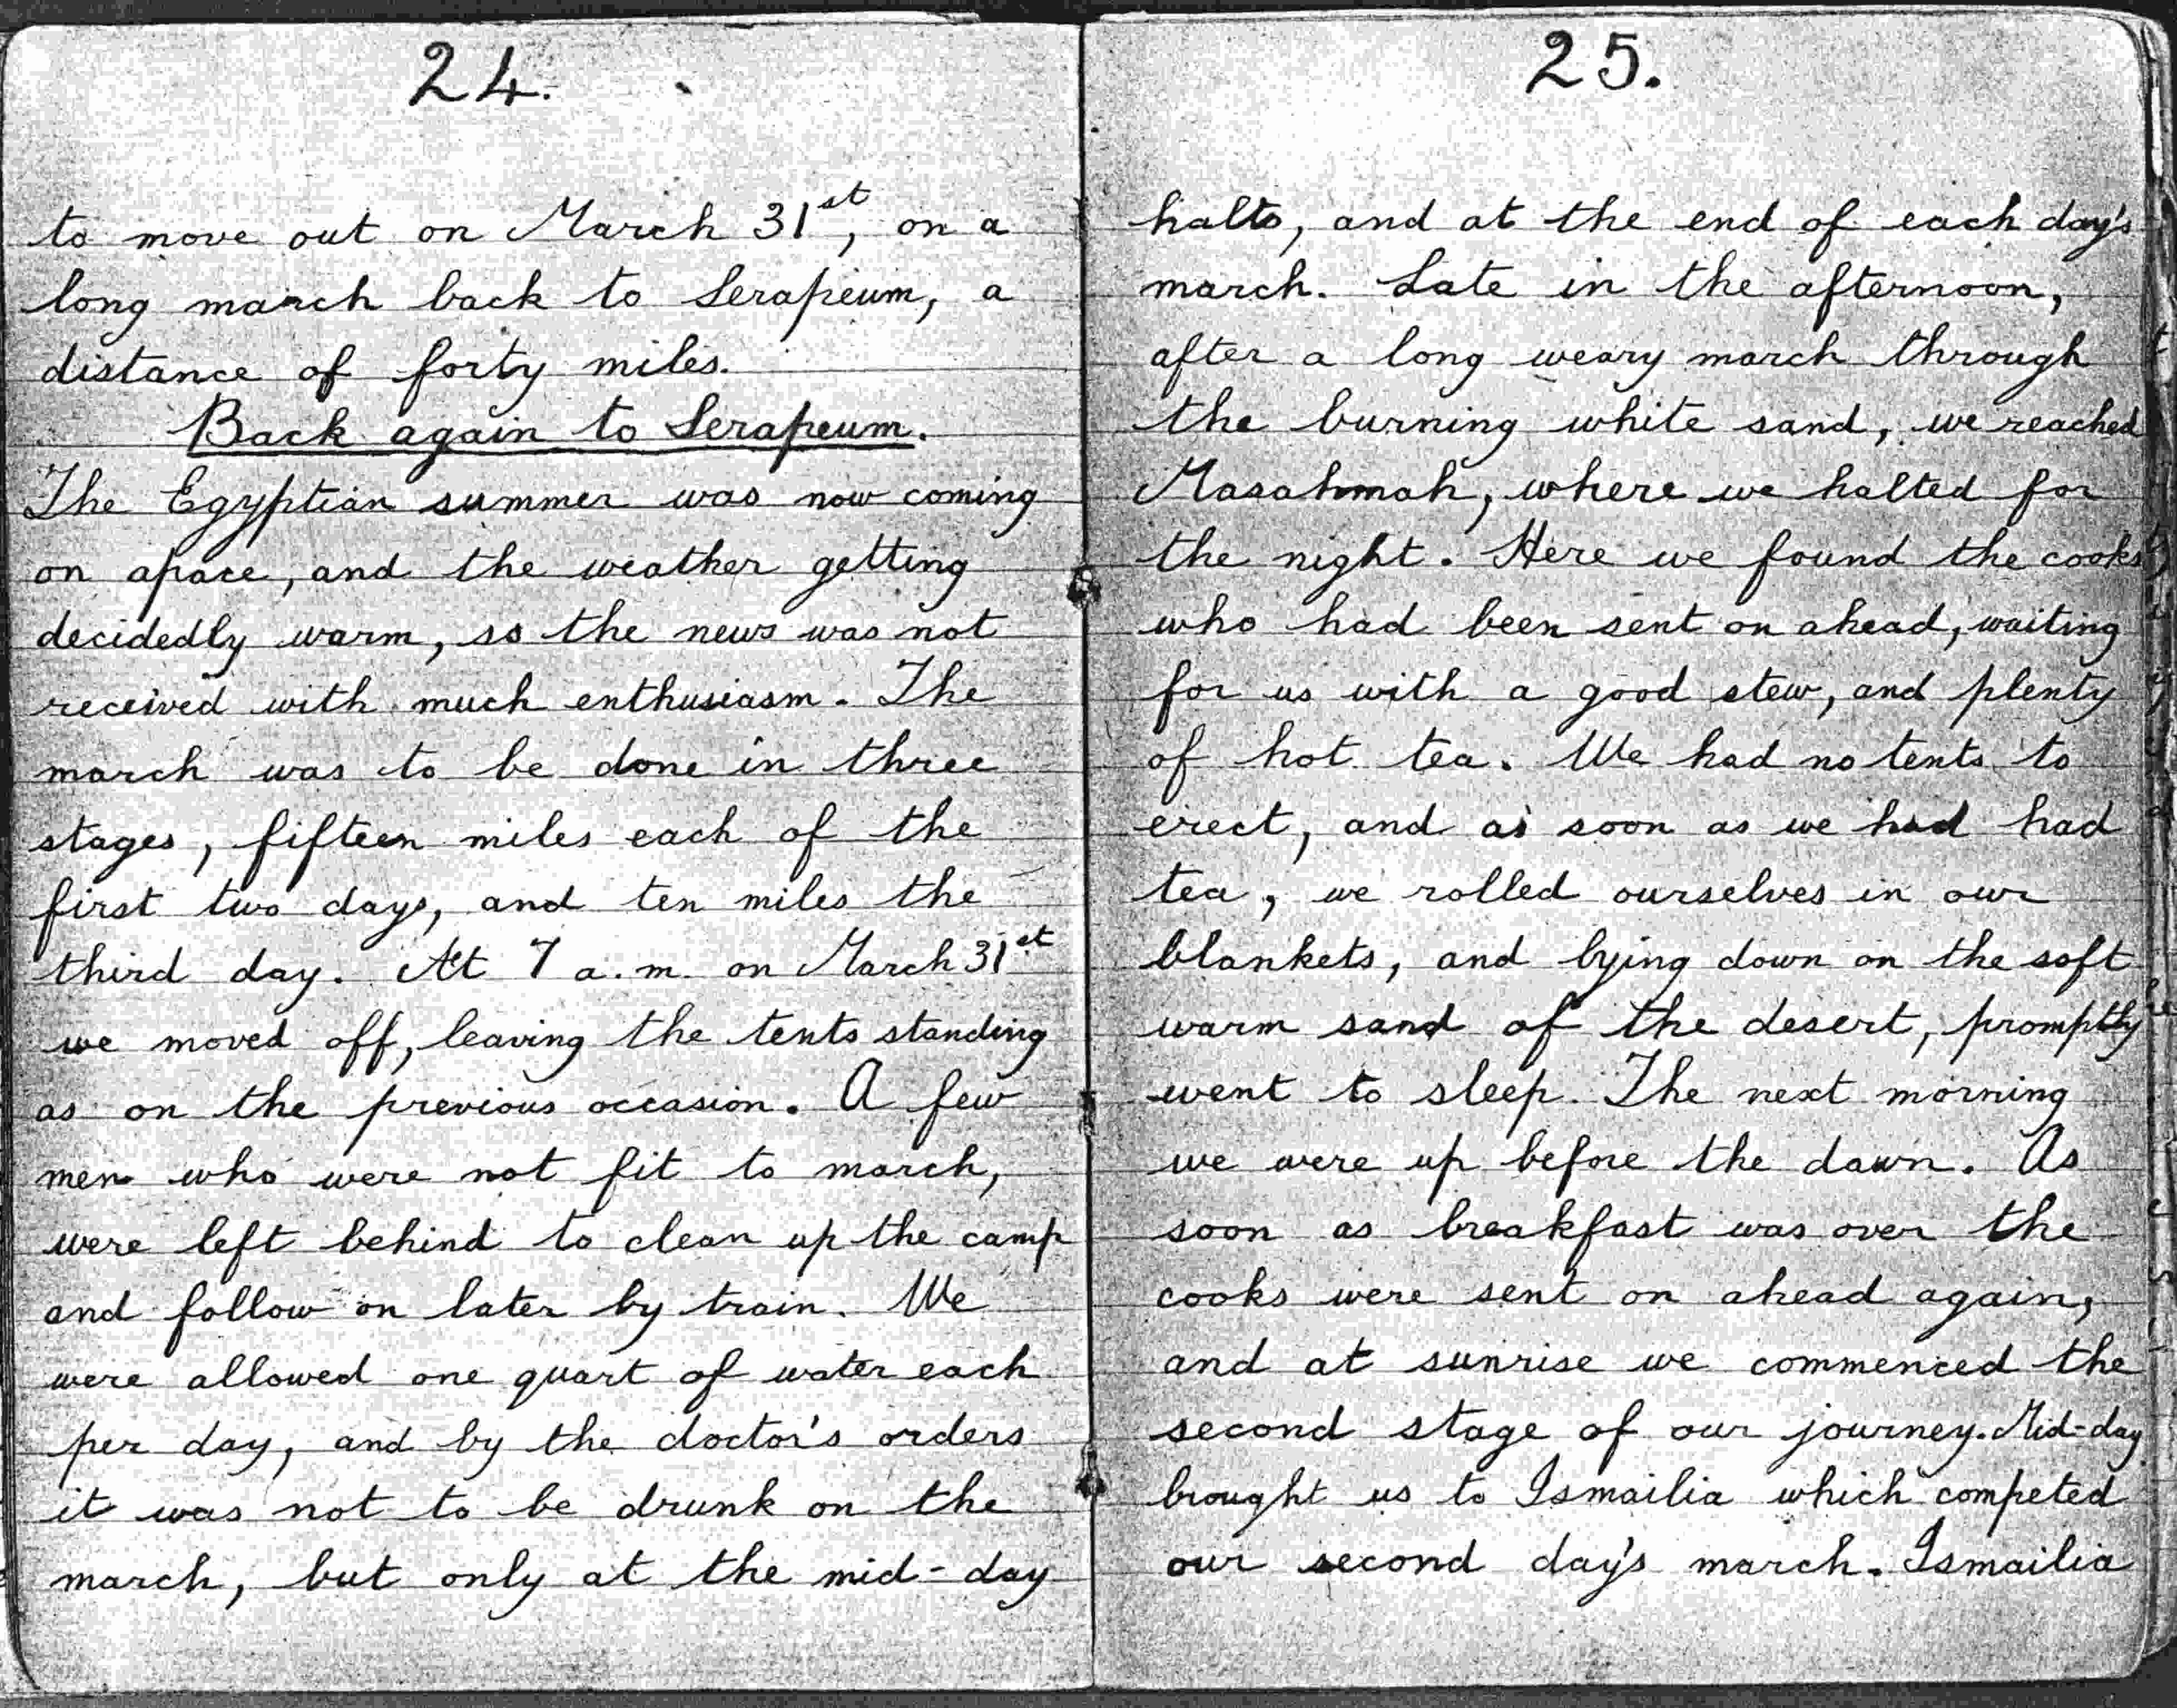 24.
to move out on March 31st, on a
long march back to Serapeum, a
distance of forty miles.
Back again to Serapeum.
The Egyptian summer was now coming
on apace, and the weather getting
decidedly warm, so the news was not
received with much enthusiasm. The
march was to be done in three
stages, fifteen miles each of the
first two days, and ten miles the
third day. At 7 a.m. on March 31st
we moved off, leaving the tents standing
as on the previous occasion. A few
men who were not fit to march,
were left behind to clean up the camp
and follow on later by train. We
were allowed one quart of water each
per day, and by the doctor's orders
it was not to be drunk on the
march, but only at the mid-day
25.
halts, and at the end of each day's
march. Late in the afternoon,
after a long weary march through
the burning white sand, we reached
Masahmah, where we halted for
the night. Here we found the cooks
who had been sent on ahead, waiting
for us with a good stew, and plenty
of hot tea. We had no tents to
erect, and as soon as we had had
tea, we rolled ourselves in our
blankets, and lying down on the soft
warm sand of the desert, promptly
went to sleep. The next morning
we were up before the dawn. As
soon as breakfast was over the
cooks were sent on ahead again,
and at sunrise we commenced the
second stage of our journey. Mid-day
brought us to Ismailia which competed
our second day's march. Ismailia